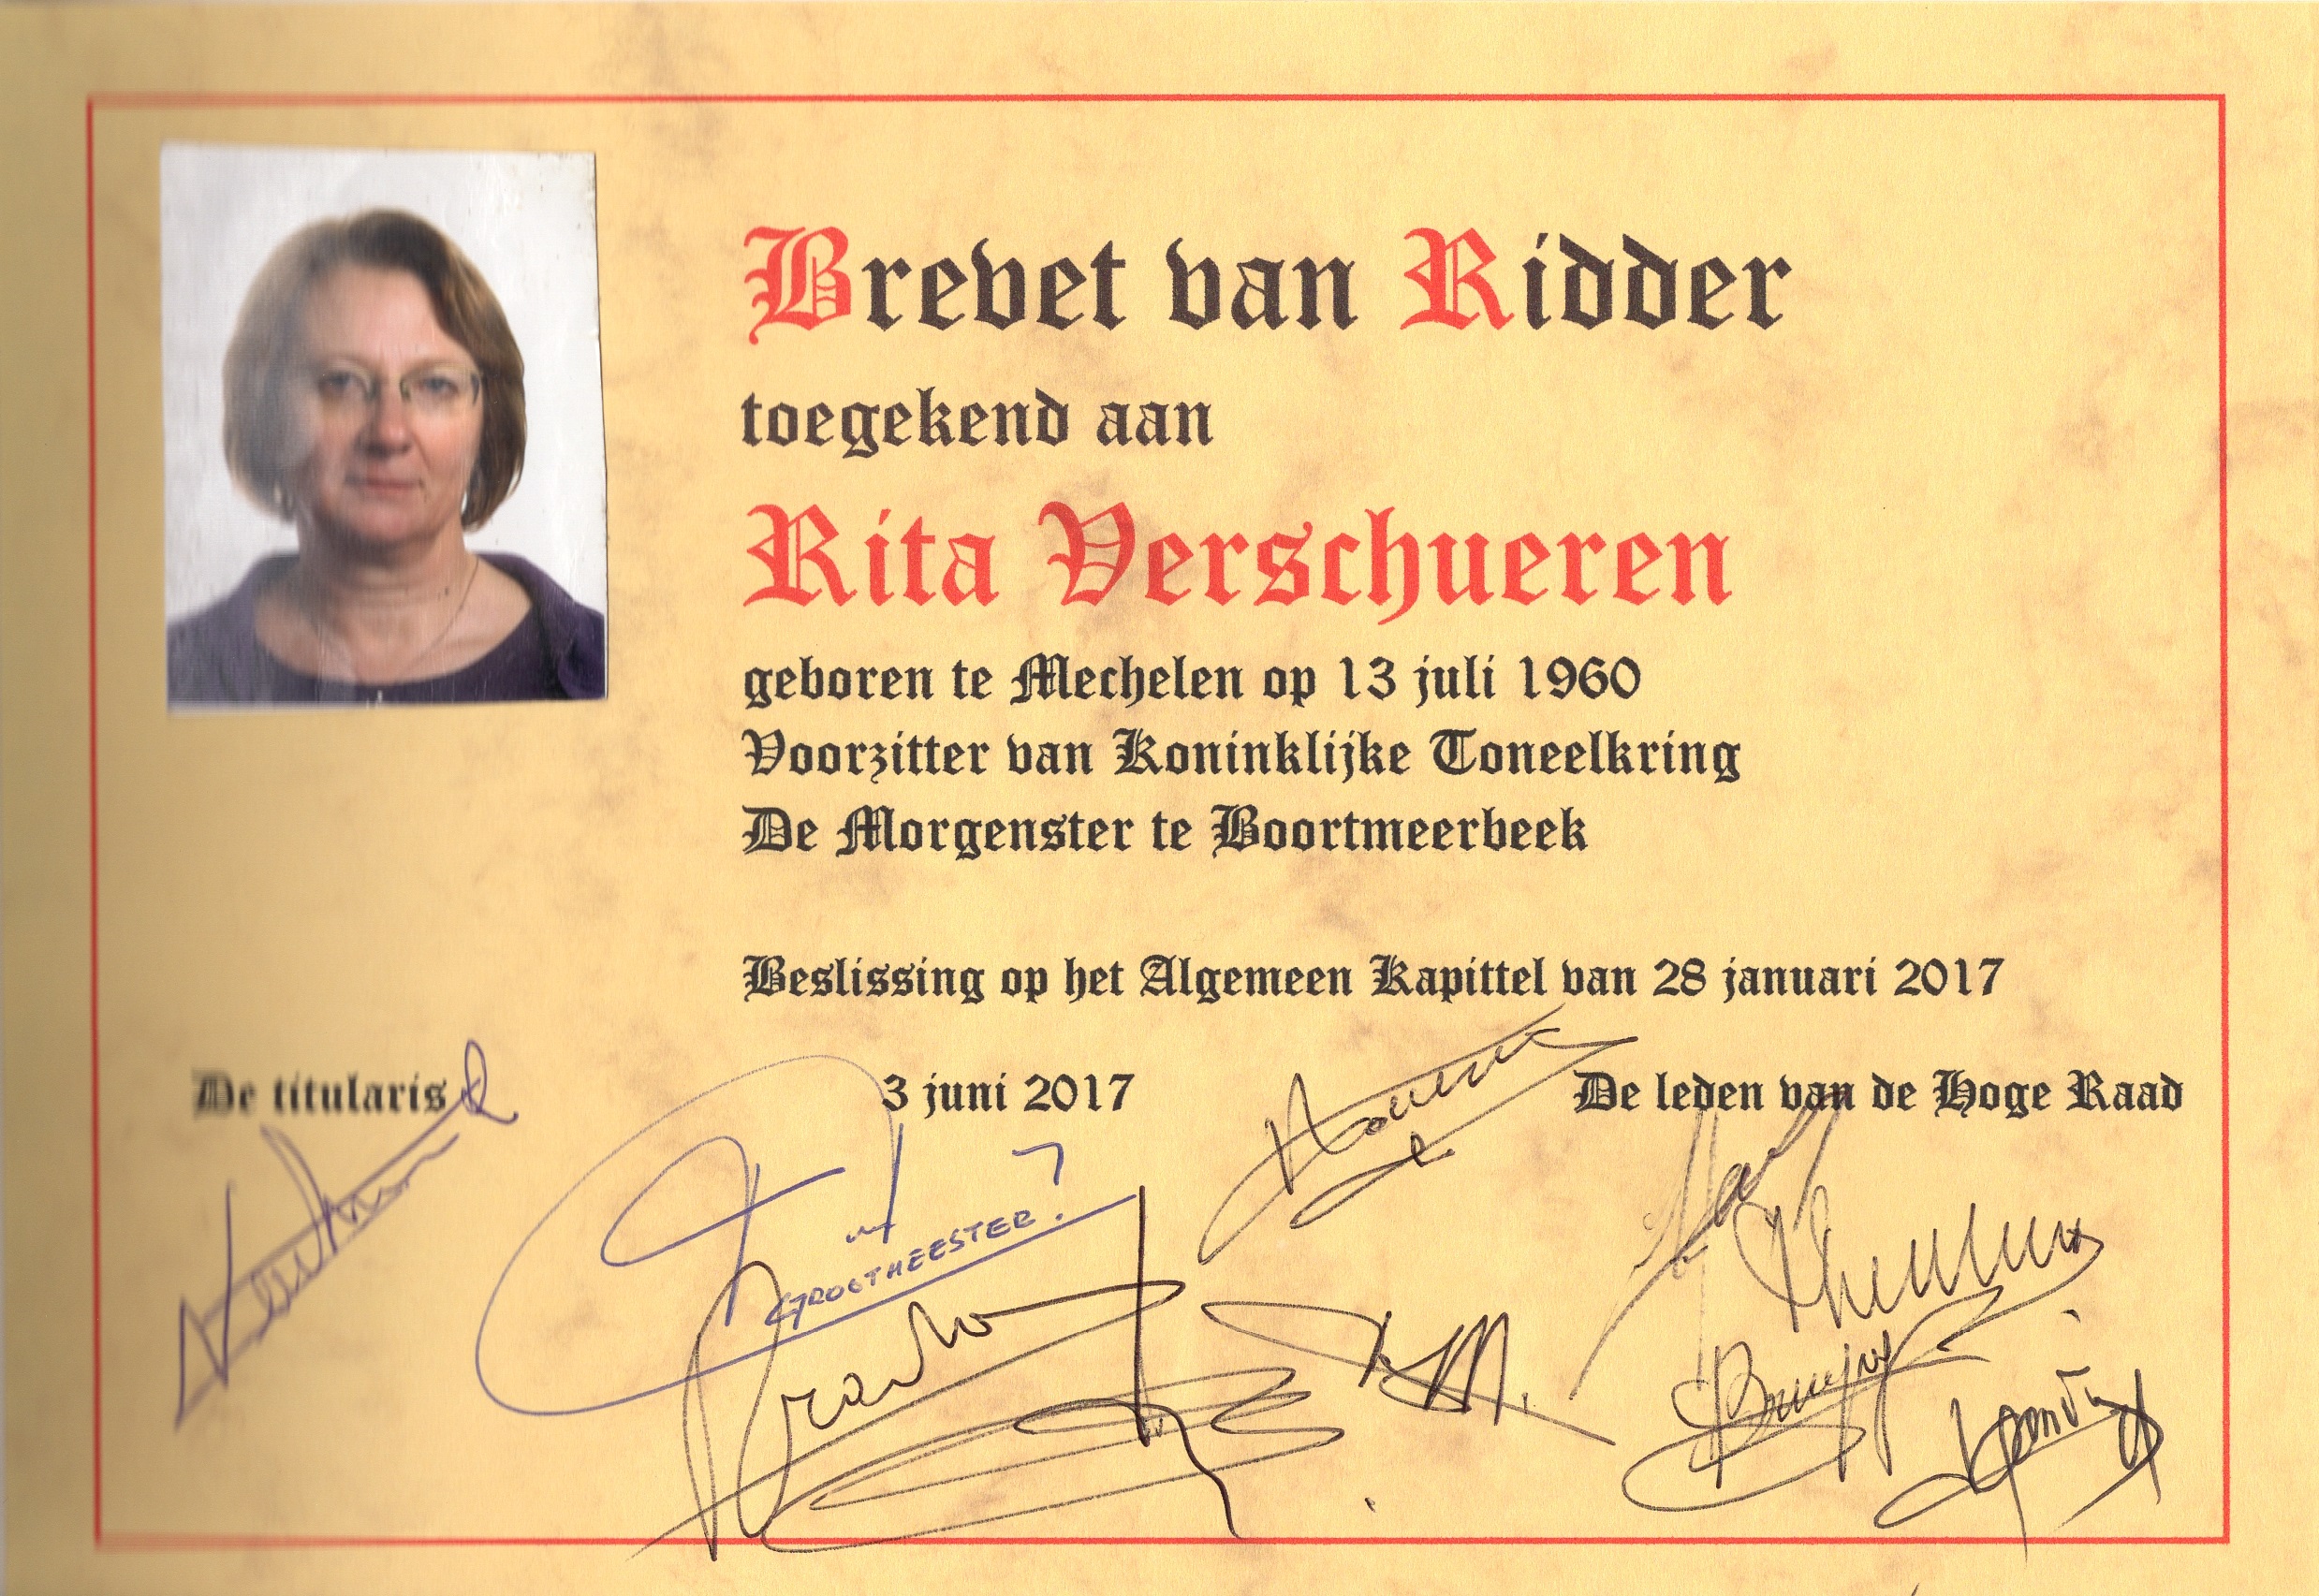 Brevet van Ridder
toegekend aan
Rita Verschueren
geboren te Mechelen op 13 juli 1960
Voorzitter van Koninklijke Toneelkring
De Morgenster te Boortmeerbeek
Beslissing op het Algemeen Kapittel van 28 januari 2017
De titularis
3 juni 2017
De leden van de Hoge Raad
GROOTMEESTER.